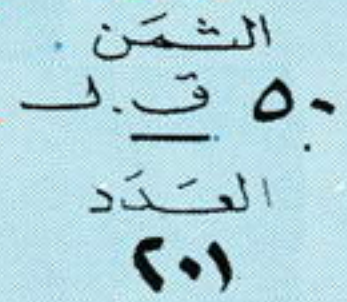 الثمَن
٥٠ ق.ل
العَدَد
٢٠١